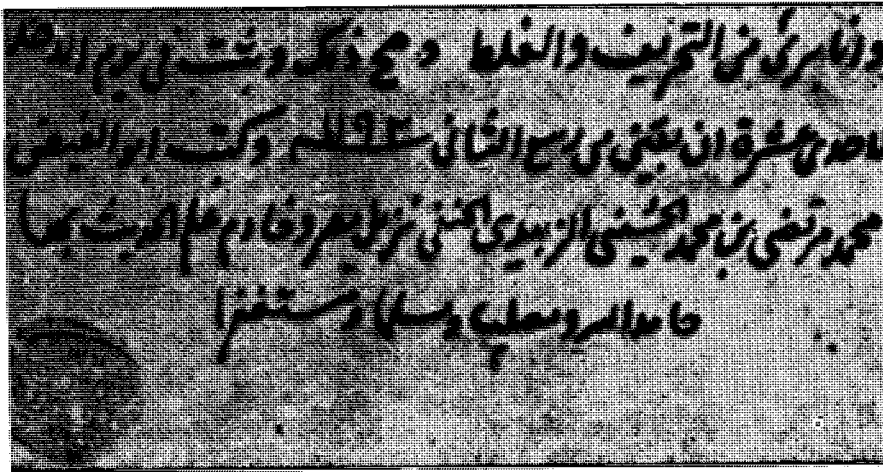 وانا برئ من التحريف والغلط وصح ذلك وثبت في يوم الاحد
لاحدى عشرة ان بقين من ربيع الثاني سنة ١١٩٢ وكتب ابو الفيض
محمد مرتضى بن محمد الحسيني الزبيدي الحنفي نزيل مصر وخادم علم الحديث بها
حامدا لله ومصليا ومسلما ومستغفرا